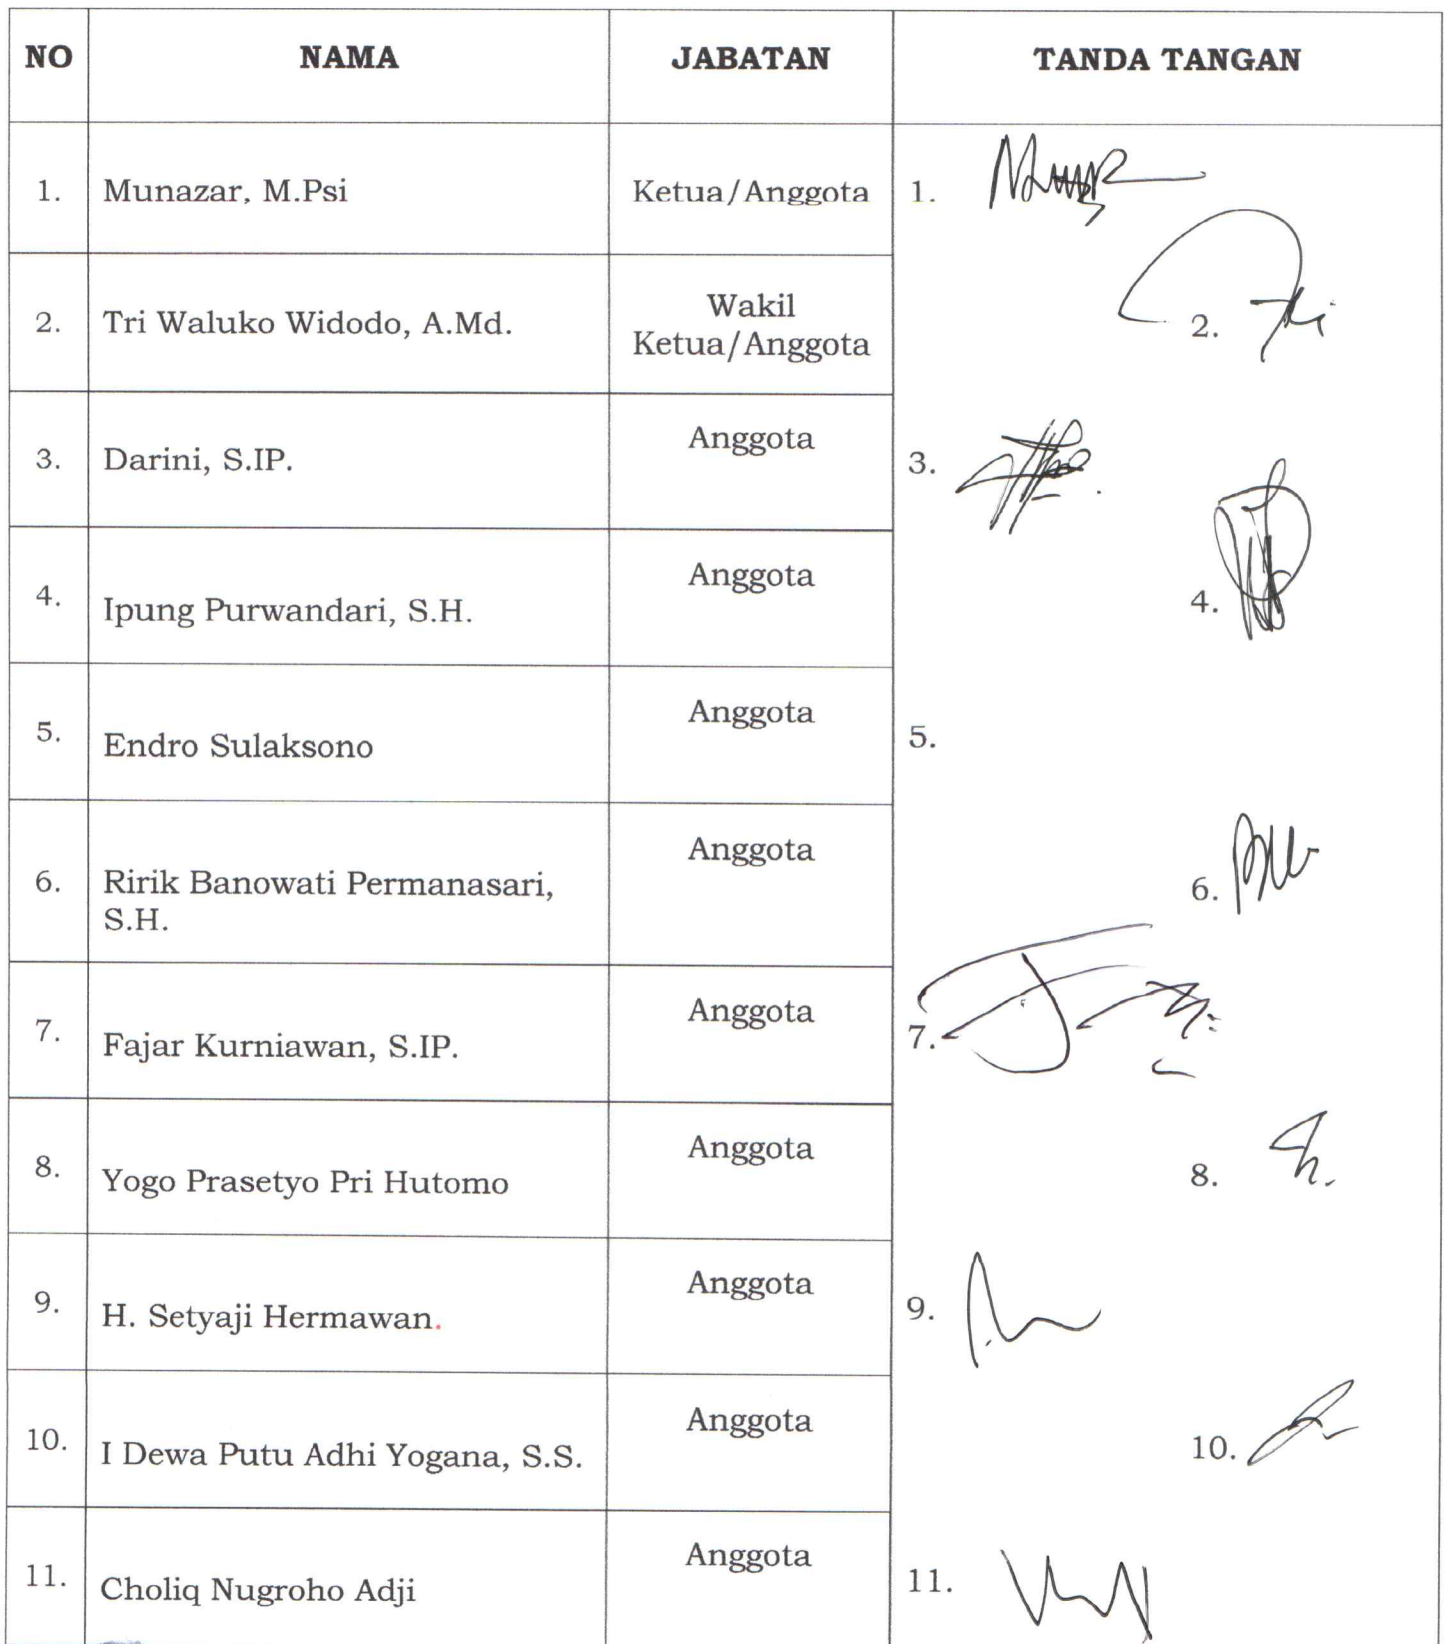 NO NAMA JABATAN TANDA TANGAN
1. Munazar, M.Psi Ketua/Anggota 1.
2. Tri Waluko Widodo, A.Md. Wakil
Ketua/Anggota 2.
3. Darini, S.IP. Anggota 3.
4. Ipung Purwandari, S.H. Anggota 4.
5. Endro Sulaksono Anggota 5.
6. Ririk Banowati Permanasari,
S.H. Anggota 6.
7. Fajar Kurniawan, S.IP. Anggota 7.
8. Yogo Prasetyo Pri Hutomo Anggota 8.
9. H. Setyaji Hermawan. Anggota 9.
10. I Dewa Putu Adhi Yogana, S.S. Anggota 10.
11. Choliq Nugroho Adji Anggota 11.